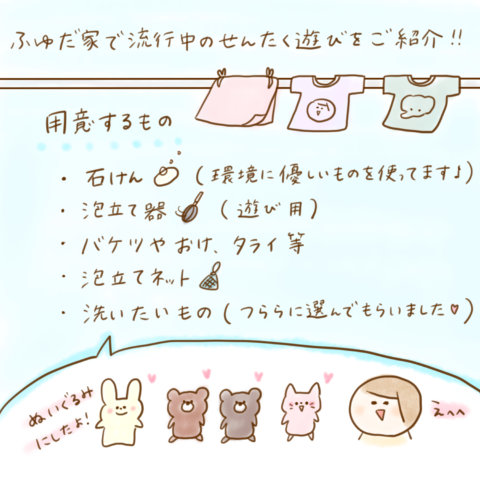 ふゆだ家で流行中のせんたく遊びをご紹介!!
用意するもの
・石けん(環境に優しいものを使ってます♪)
・泡立て器(遊び用)
・バケツやおけ、タライ等
・泡立てネット
・洗いたいもの(つららに選んでもらいました♥)
ぬいぐるみ
にしたよ!
えへへ